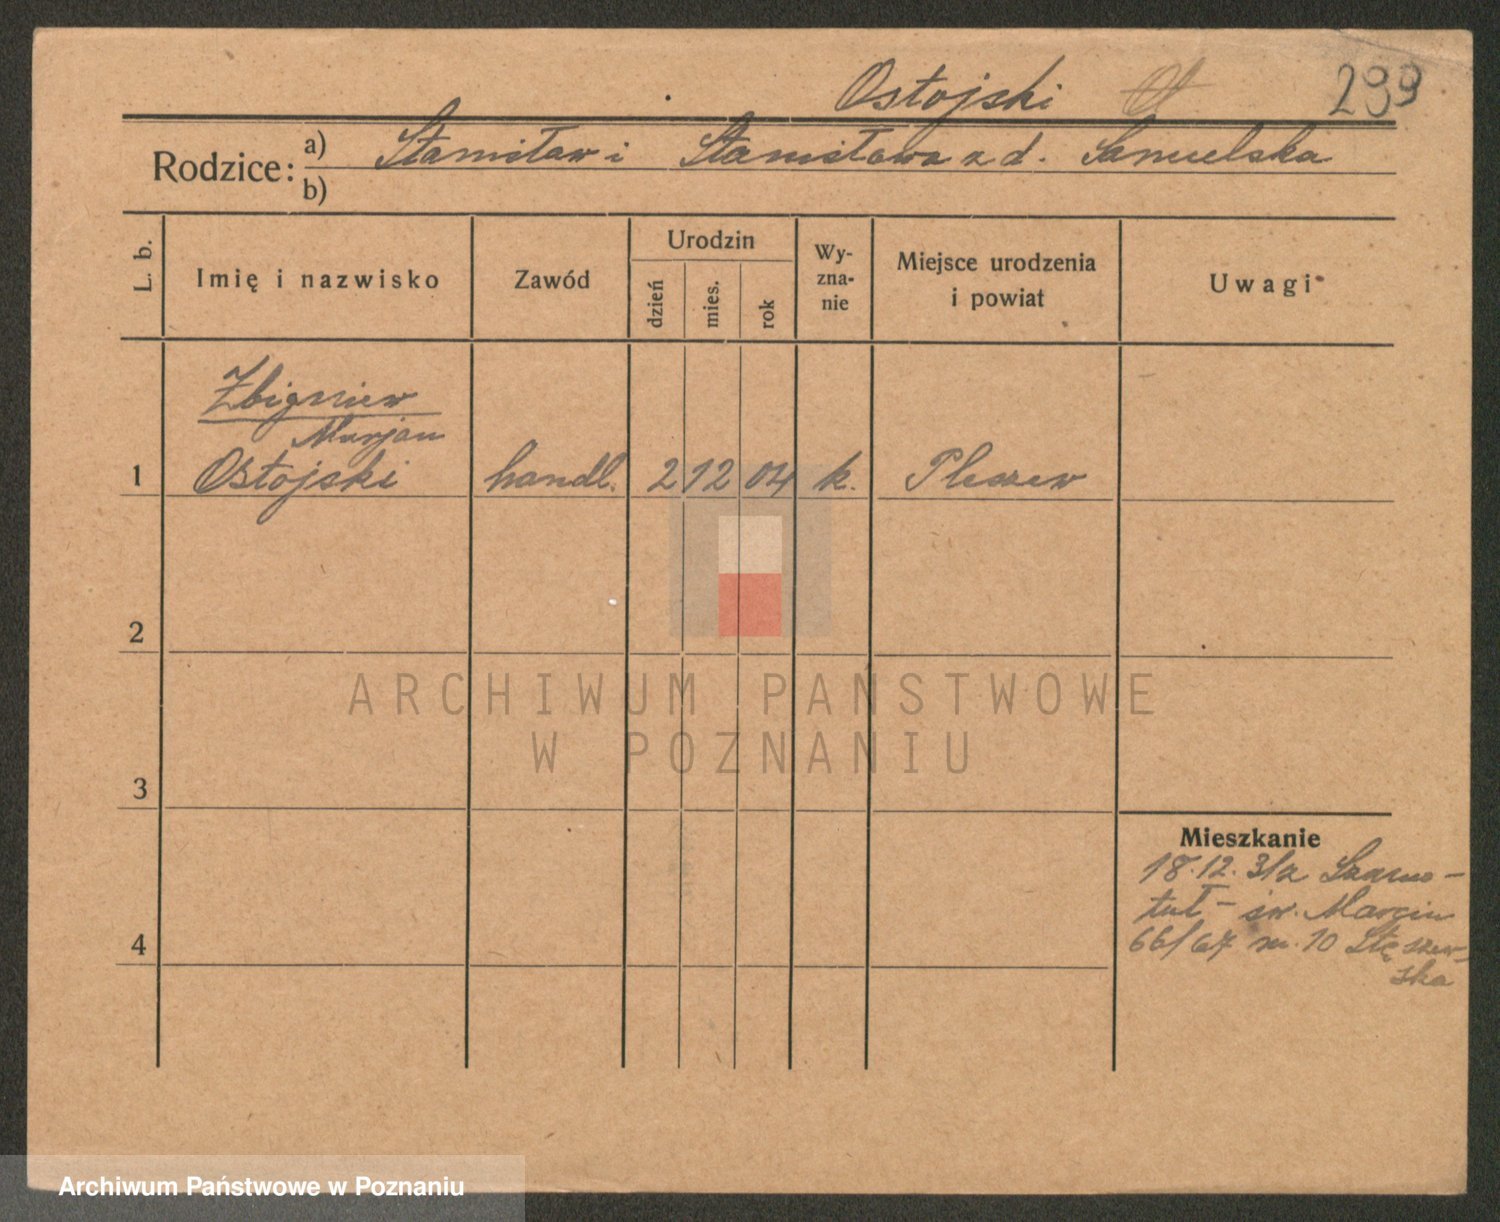 Ostojski 299
Rodzice: a) Stanisław i Stanisława z d. Samelska
b)
L. b. Imię i nazwisko Zawód Urodzin dzień mies. rok Wy-zna-nie Miejsce urodzenia i powiat Uwagi
Zbigniew
Marjan
1 Ostojski handl. 2 12 04 k. Pleszew
2
ARCHIWUM PAŃSTWOWE
W POZNANIU
3
Mieszkanie
18.12.31 z Szamo-
tuł - św. Marcin
4 66/67 m. 10 Stęszew-
ska
Archiwum Państwowe w Poznaniu